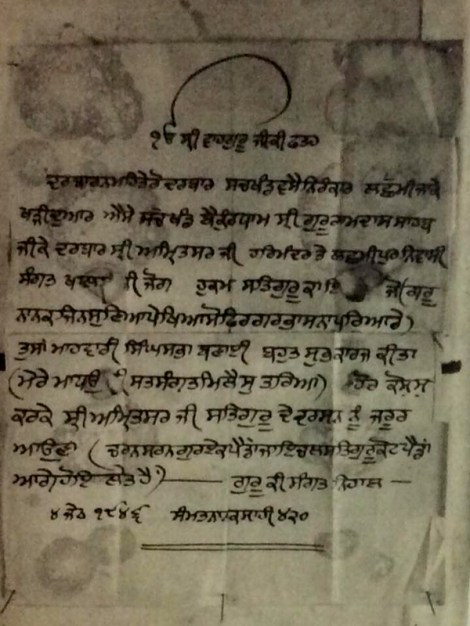 ੧ੳ ਸ੍ਰੀ ਵਾਹਗੁਰੂ ਜੀਕੀ ਫਤਹ
ਦਰਬਾਰਨਮਹਿਤੇਰੋਦਰਬਾਰ ਸਚਖੰਡਵਸੈਨਿਰੰਕਾਰ ਲਛਮੀਜਾਕੇ
ਖੜੀਦੁਆਰ ਐਸੇ ਸਚ ਖੰਡ ਬੈਕੁੰਠਧਾਮ ਸ੍ਰੀ ਗੁਰੂਰਾਮਦਾਸ ਸਾਹਬ
ਜੀਕੇ ਦਰਬਾਰ ਸ੍ਰੀ ਅਮ੍ਰਿਤਸਰ ਜੀ ਹਰਿਮੰਦਰ ਤੇ ਲਛਮੀਪੁਰ ਨਿਵਾਸੀ
ਸੰਗਤ ਜੀ ਜੋਗ ਹੁਕਮ ਸਤਿਗੁਰੂ ਕਾ ਜੋ(ਗੁਰੂ
ਨਾਨਕਜਿਨਸੁਣਿਆਪੇਖਿਆਸੇਫਿਰਗਰਭਾਸਨਾਪਰਿਆਰੇ)
ਤੁਸਾਂ ਮਾਹਵਾਰੀ ਸਿੰਘਸਭਾ ਬਣਾਈ ਬਹੁਤ ਸੁਭਕਾਰਜ ਕੀਤਾ
(ਮੇਰੇ ਮਾਧਉ ਜੀ ਸਤਸੰਗਤਮਿਲੈਸੁ ਤਰਿਆ) ਹੋਰ
ਕਰਕੇ ਸ੍ਰੀ ਅਮ੍ਰਿਤਸਰ ਜੀ ਸਤਿਗੁਰੂ ਦੇ ਦਰਸਨ ਨੂੰ ਜਰੂਰ
ਆਉਣਾ (ਚਰਨਸਰਨਗੁਰਏਕਪੈਂਡਾਜਾਇਚਲਸਤਿਗੁਰੂਕੋਟਪੈਂਡਾ
ਆਗੇਹੋਇ ਲੇਤ ਹੈ)— ਗੁਰੂ ਕੀ ਸੰਗਤ ਨਿਹਾਲ —
੪ ਜੇਠ ੧੯੪੬ ਸੰਮਤਨਾਨਕਸਾਹੀ ੪੨੦